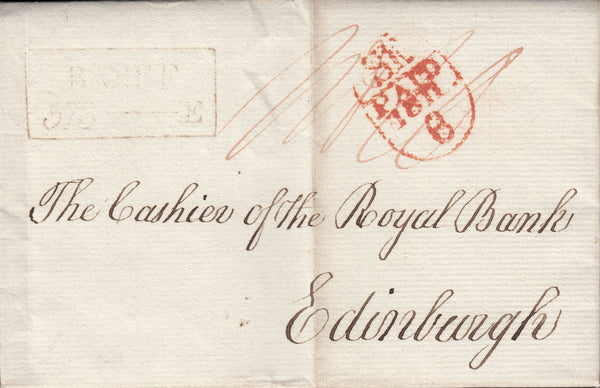 PAID
1811
8
The Cashier of the Royal Bank
Edinburgh